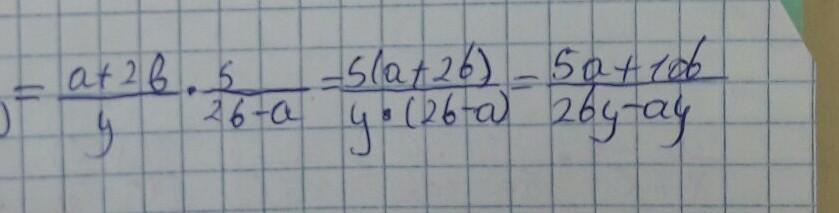 ) = \frac{a+2b}{y} \cdot \frac{5}{2b-a} = \frac{5(a+2b)}{y \cdot (2b-a)} = \frac{5a+10b}{2by-ay}